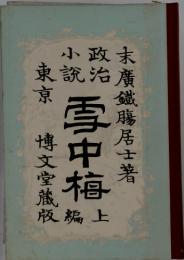 末廣鐵腸居士著
政治
小説
雪中梅
上編
東京
博文堂蔵版